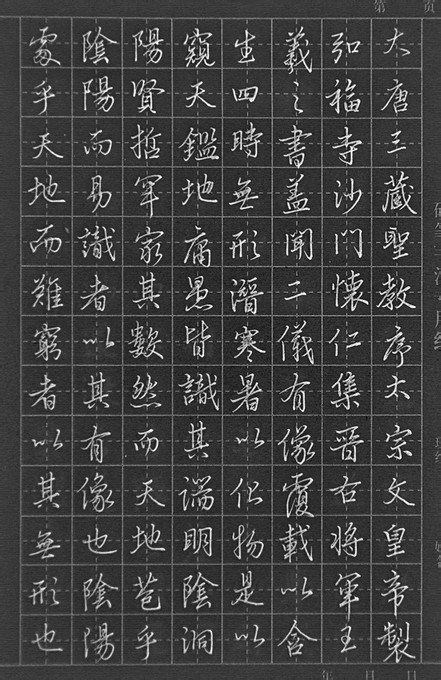 大唐三藏聖教序太宗文皇帝製
弘福寺沙門懷仁集晉右將軍王
羲之書蓋聞二儀有像覆載以含
生四時無形潛寒暑以化物是以
窺天鑑地庸愚皆識其端明陰洞
陽賢哲罕窮其數然而天地苞乎
陰陽而易識者以其有像也陰陽
處乎天地而難窮者以其無形也
第 页
年 月 日